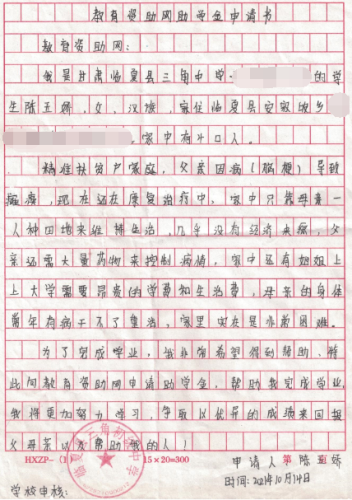 教育资助网助学金申请书
教育资助网:
我是甘肃临夏县三角中学· 的学
生陈玉娇,女、汉族,家住临夏县安家坡乡
。家中有4口人。
精准扶贫户家庭,父亲因病(脑梗)导致
瘫痪,现在还在康复治疗中,家中只靠母亲一
人种田地来维持生活,几乎没有经济来源,父
亲还需大量药物来控制病情,家中还有姐姐上
上大学需要昂贵的学费和生活费,母亲的身体
常年有病干不了重活,家里实在是非常困难。
为了完成学业,我非常希望得到帮助、特
此向教育资助网申请助学金,帮助我完成学业,
我将更加努力学习,争取以优异的成绩来回报
父母亲以及帮助我的人!
HXZP-(1) 15×20=300
申请人 第 陈 娇
学校审核:
时间:2021年10月14日